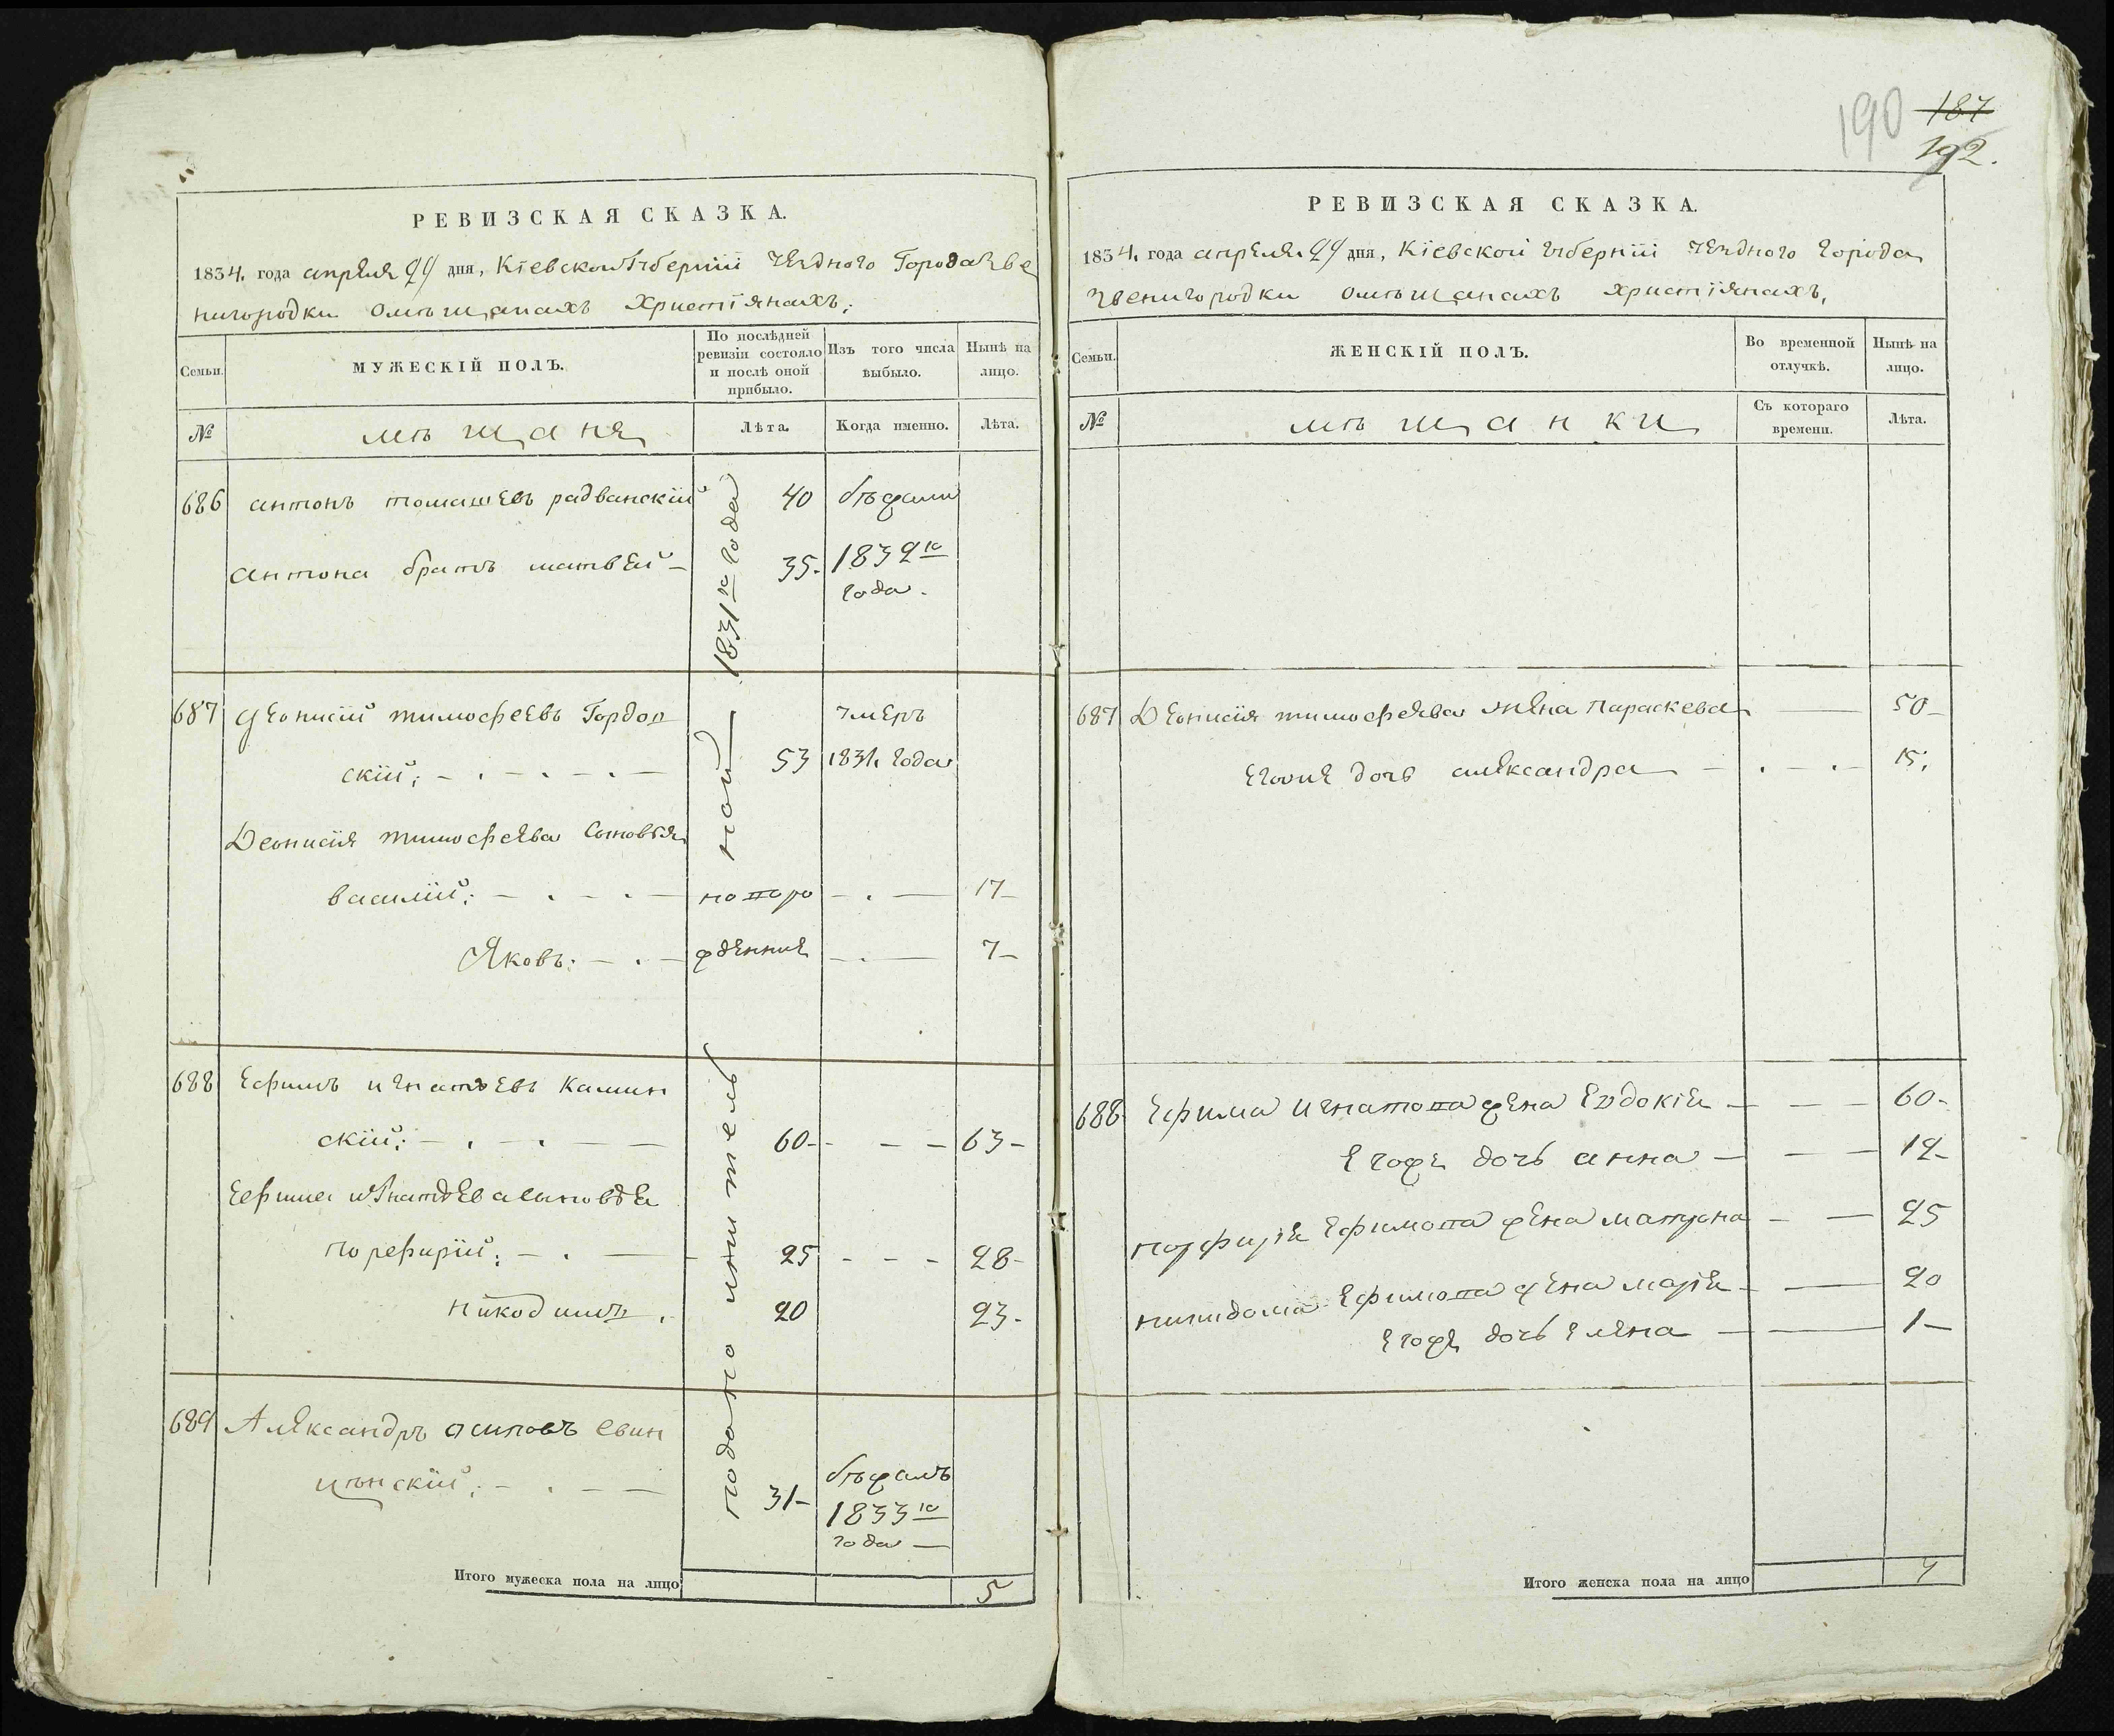 РЕВИЗСКАЯ СКАЗКА.
1834. года апреля 24 дня, Кіевской Губерніи уезднаго Города Зве
нигородки омѣщанахъ христіянахъ;
Семьи.
МУЖЕСКІЙ ПОЛЪ.
По послѣдней ревизіи состояло и послѣ оной прибыло.
Изъ того числа выбыло.
Нынѣ на лицо.
№
мѣщаня
Лѣта.
Когда именно.
Лѣта.
подано мнитель ной 1831го года
686 антонъ томашевъ радванскій 40 бѣжали
антона братъ матвей — 35. 1832го
года.
687 Деонисій тимофеевъ Гордов умеръ
скій; — . — . — . — 53 1831. года
Деонисія тимофеева сыновья
василій; — . — . — новоро — . — 17—
Яковъ; — . — жденние — . — 7—
688 Ефимъ игнатьевъ Камин
скій; — . — . — — 60— — — 63—
Ефима игнатьева сыновья
порфирій; — . — 25 — — — 28—
никодимъ . 20 23—
689 Александръ осиповъ свин
цѣнскій; — . — — 31— бѣжалъ
1833го
года —
Итого мужеска пола на лицо 5
190 187
192.
РЕВИЗСКАЯ СКАЗКА.
1834. года апреля 24 дня, Кіевской губерніи уезднаго города
звенигородки омѣщанахъ христіянахъ,
Семьи.
ЖЕНСКІЙ ПОЛЪ.
Во временной отлучкѣ.
Нынѣ на лицо.
№
мѣщанки
Съ котораго времени.
Лѣта.
687 Деонисія тимофеява жена параскева — 50—
Егоже дочь александра — . — . — 15;
688 Ефима игнатова жена Евдокія — — — 60—
Егоже дочь анна — — — 12—
порфирія Ефимова жена матрона — — 25
Ефимова жена марія — — 20
Егоже дочь Елена — — 1—
Итого женска пола на лицо 7